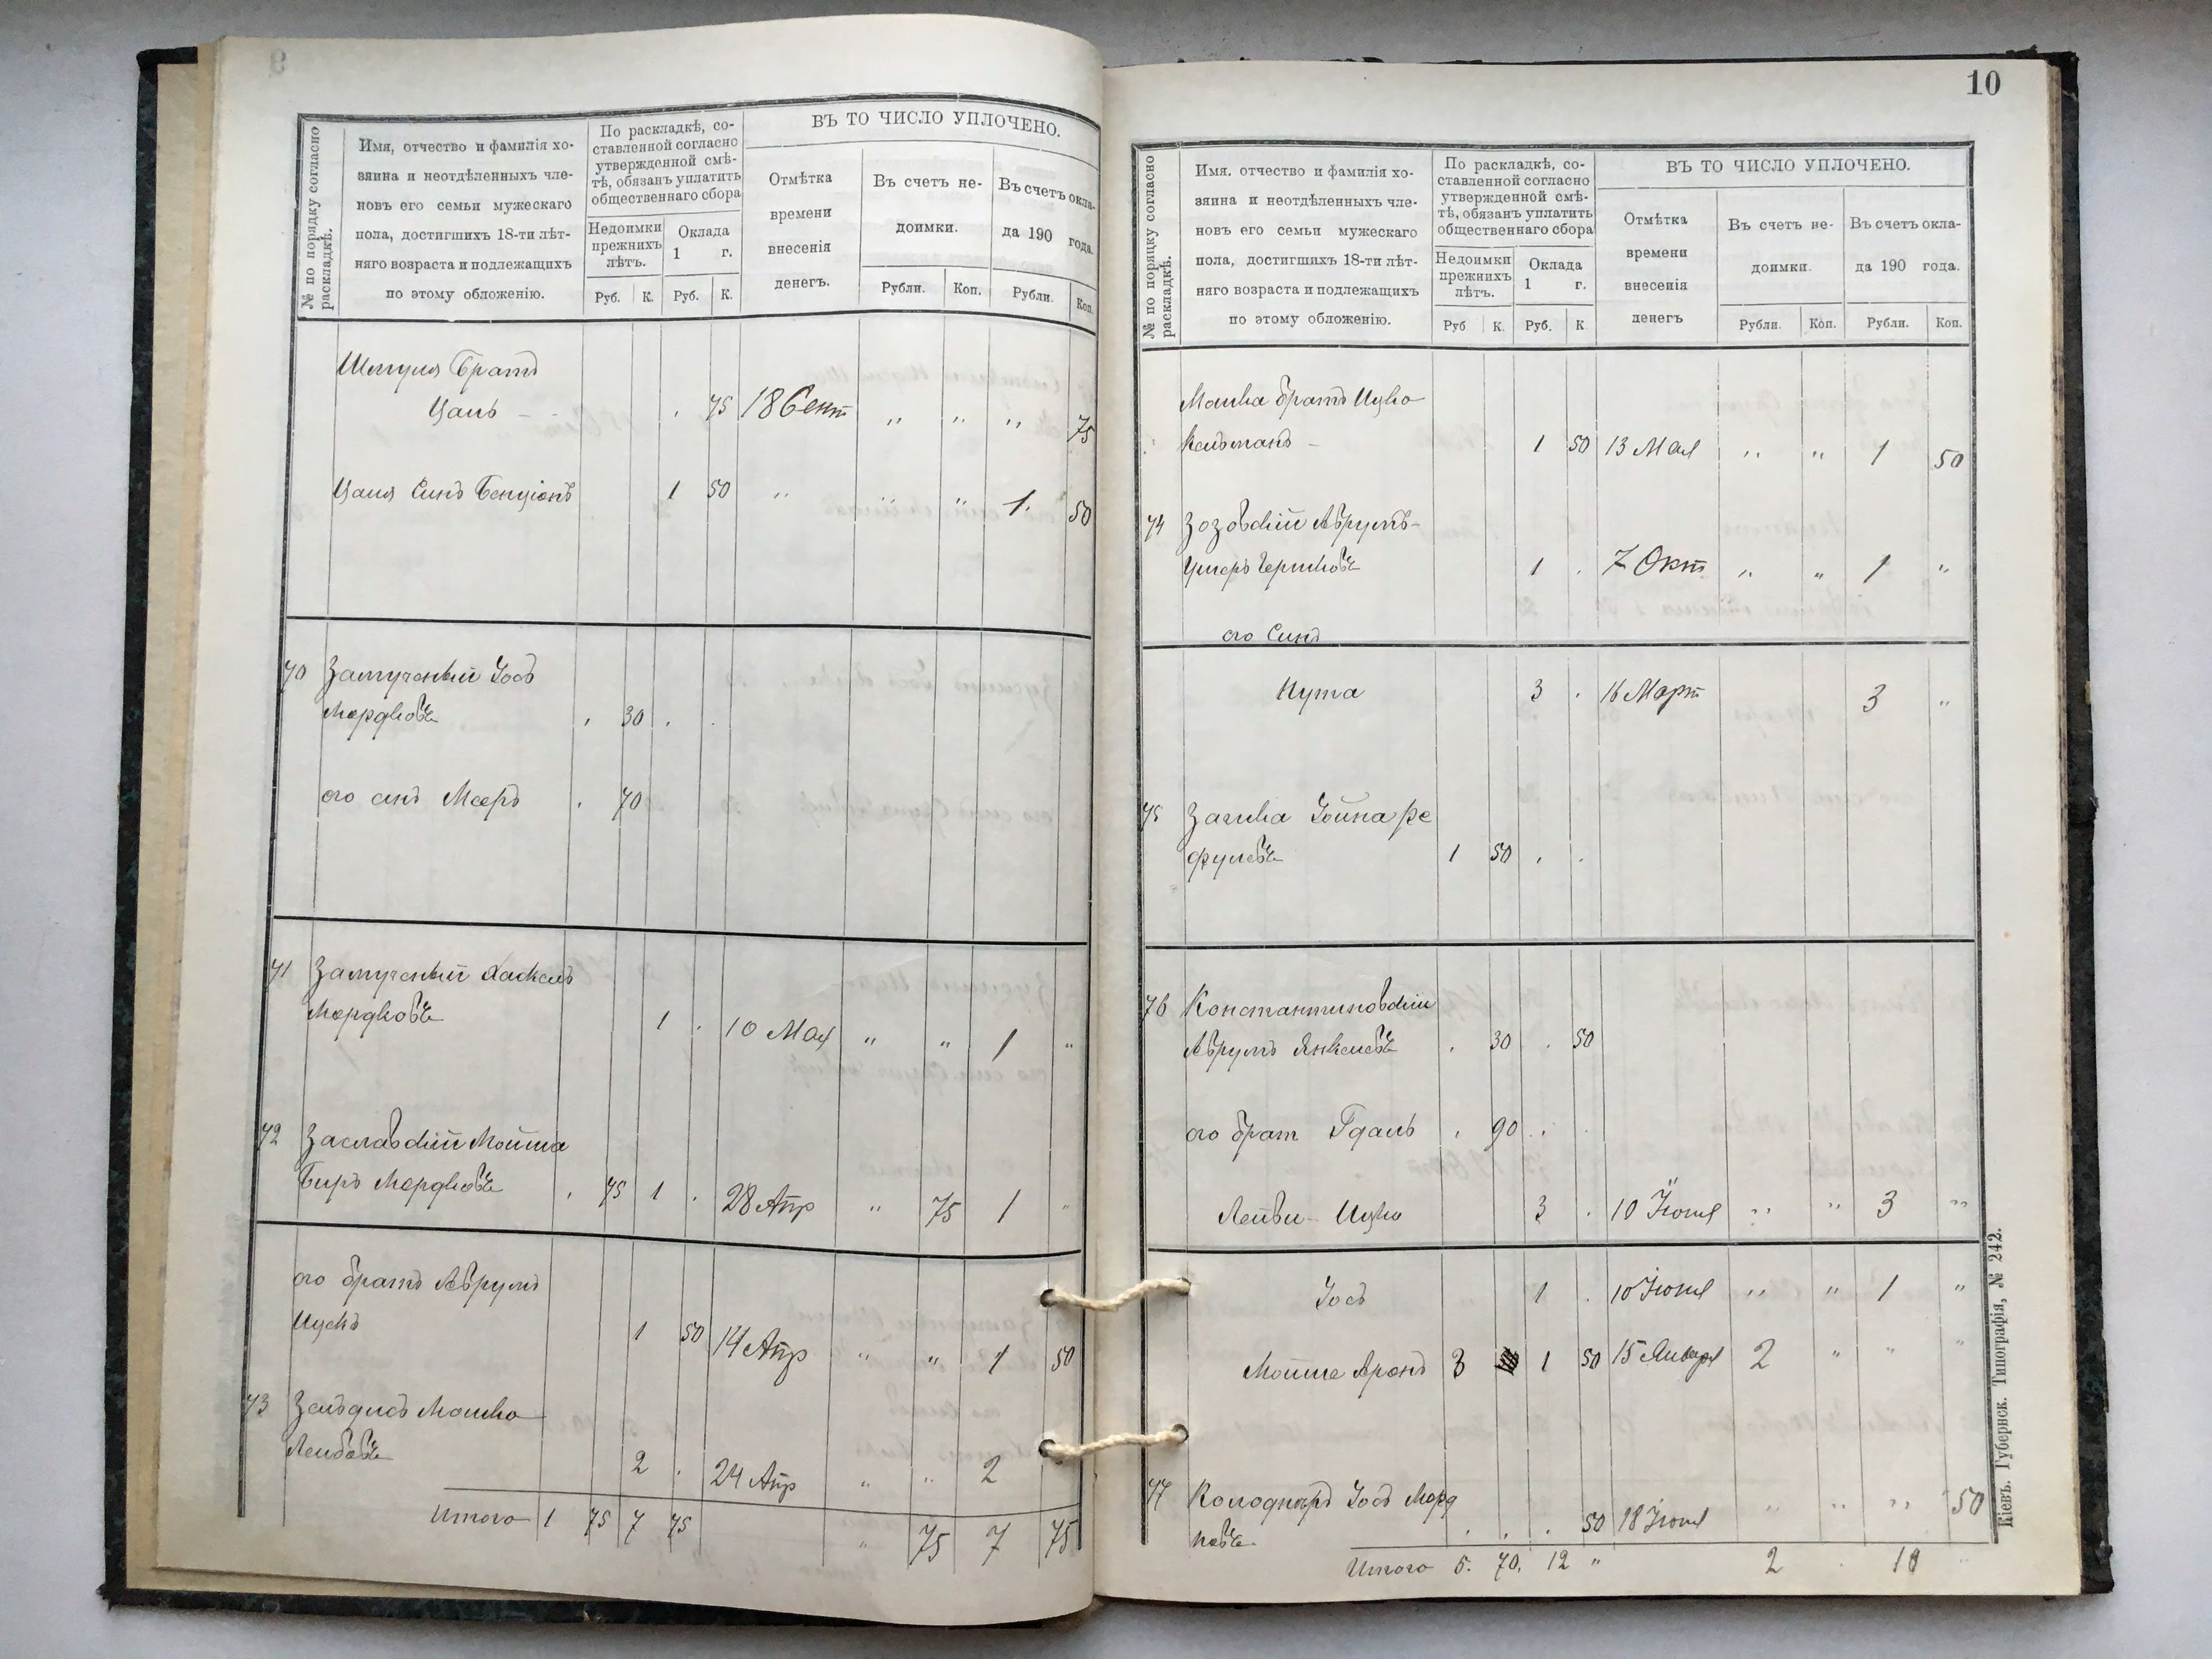 № по порядку согласно
раскладкѣ.
Имя, отчество и фамилія хо-
зяина и неотдѣленныхъ чле-
новъ его семьи мужескаго
пола, достигшихъ 18-ти лѣт-
няго возраста и подлежащихъ
по этому обложенію.
По раскладкѣ, со-
ставленной согласно
утвержденной смѣ-
тѣ, обязанъ уплатить
общественнаго сбора
Недоимки
прежнихъ
лѣтъ.
Оклада
1 г.
Руб. К. Руб. К.
ВЪ ТО ЧИСЛО УПЛОЧЕНО.
Отмѣтка
времени
внесенія
денегъ.
Въ счетъ не-
доимки.
Рубли. Коп.
Въ счетъ окла-
да 190 года.
Рубли. Коп.
Шмуля братъ
Цаль - . 75 18 Сент " " " 75
Цаля Синъ Бенціонъ 1 50 " " " 1. 50
70 Замученый Іосъ
Мордковъ . 30 . .
его синъ Мееръ . 70
71 Замученый Хаскель
Мордковъ 1 . 10 Мая " " 1 "
72 Заславскій Мойша
Беръ Мордковъ . 75 1 . 28 Апр " 75 1 "
его братъ Аврумъ
Ицекъ 1 50 14 Апр " " 1 50
73 Зальдисъ Мошко
Лейбовъ 2 . 24 Апр " " 2
Итого 1 75 7 75 " 75 7 75
10
№ по порядку согласно
раскладкѣ.
Имя, отчество и фамилія хо-
зяина и неотдѣленныхъ чле-
новъ его семьи мужескаго
пола, достигшихъ 18-ти лѣт-
няго возраста и подлежащихъ
по этому обложенію.
По раскладкѣ, со-
ставленной согласно
утвержденной смѣ-
тѣ, обязанъ уплатить
общественнаго сбора
Недоимки
прежнихъ
лѣтъ.
Оклада
1 г.
Руб К. Руб. К
ВЪ ТО ЧИСЛО УПЛОЧЕНО.
Отмѣтка
времени
внесенія
денегъ
Въ счетъ не-
доимки.
Рубли. Коп.
Въ счетъ окла-
да 190 года.
Рубли. Коп.
Мошка братъ Ицко
Кельманъ - 1 50 13 Мая " " 1 50
74 Зозовскій Аврумъ-
Ушеръ Гершковъ 1 . 7 Окт " " 1 "
его Синъ
Нута 3 . 16 Март 3 "
75 Заика Іойна Ре
фулевъ 1 50 . .
76 Константиновскій
Аврумъ Янкелевъ . 30 . 50
его брат Гдаль . 90 . .
Лейви-Ицко 3 . 10 Іюня " " 3 "
Іосъ 1 . 10 Іюня " " 1 "
Мойше Аронъ 3 1 50 15 Января 2 " " "
77 Колоднеръ Іосъ Морд
ковъ . . . 50 18 Іюня " " " 50
Итого 5. 70. 12 " 2 . 10
Кіевъ. Губернск. Типографія, № 242.